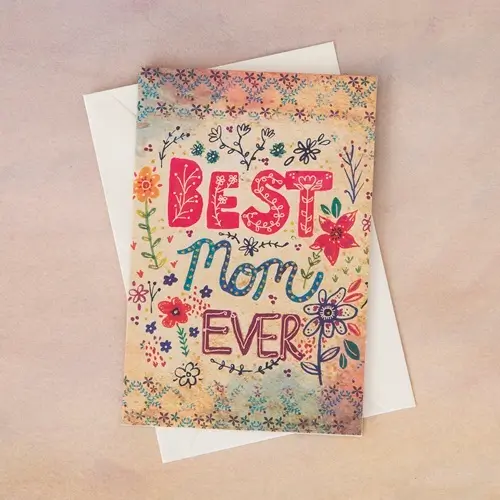 BEST
Mom
EVER